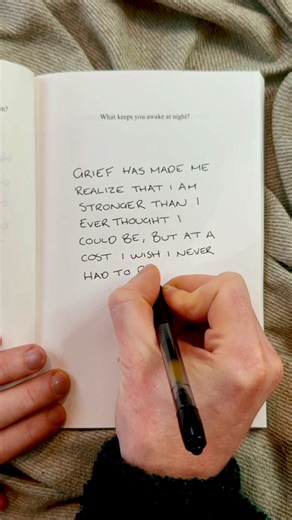 What keeps you awake at night?
GRIEF HAS MADE ME
REALIZE THAT I AM
STRONGER THAN I
EVER THOUGHT I
COULD BE, BUT AT A
COST I WISH I NEVER
HAD TO